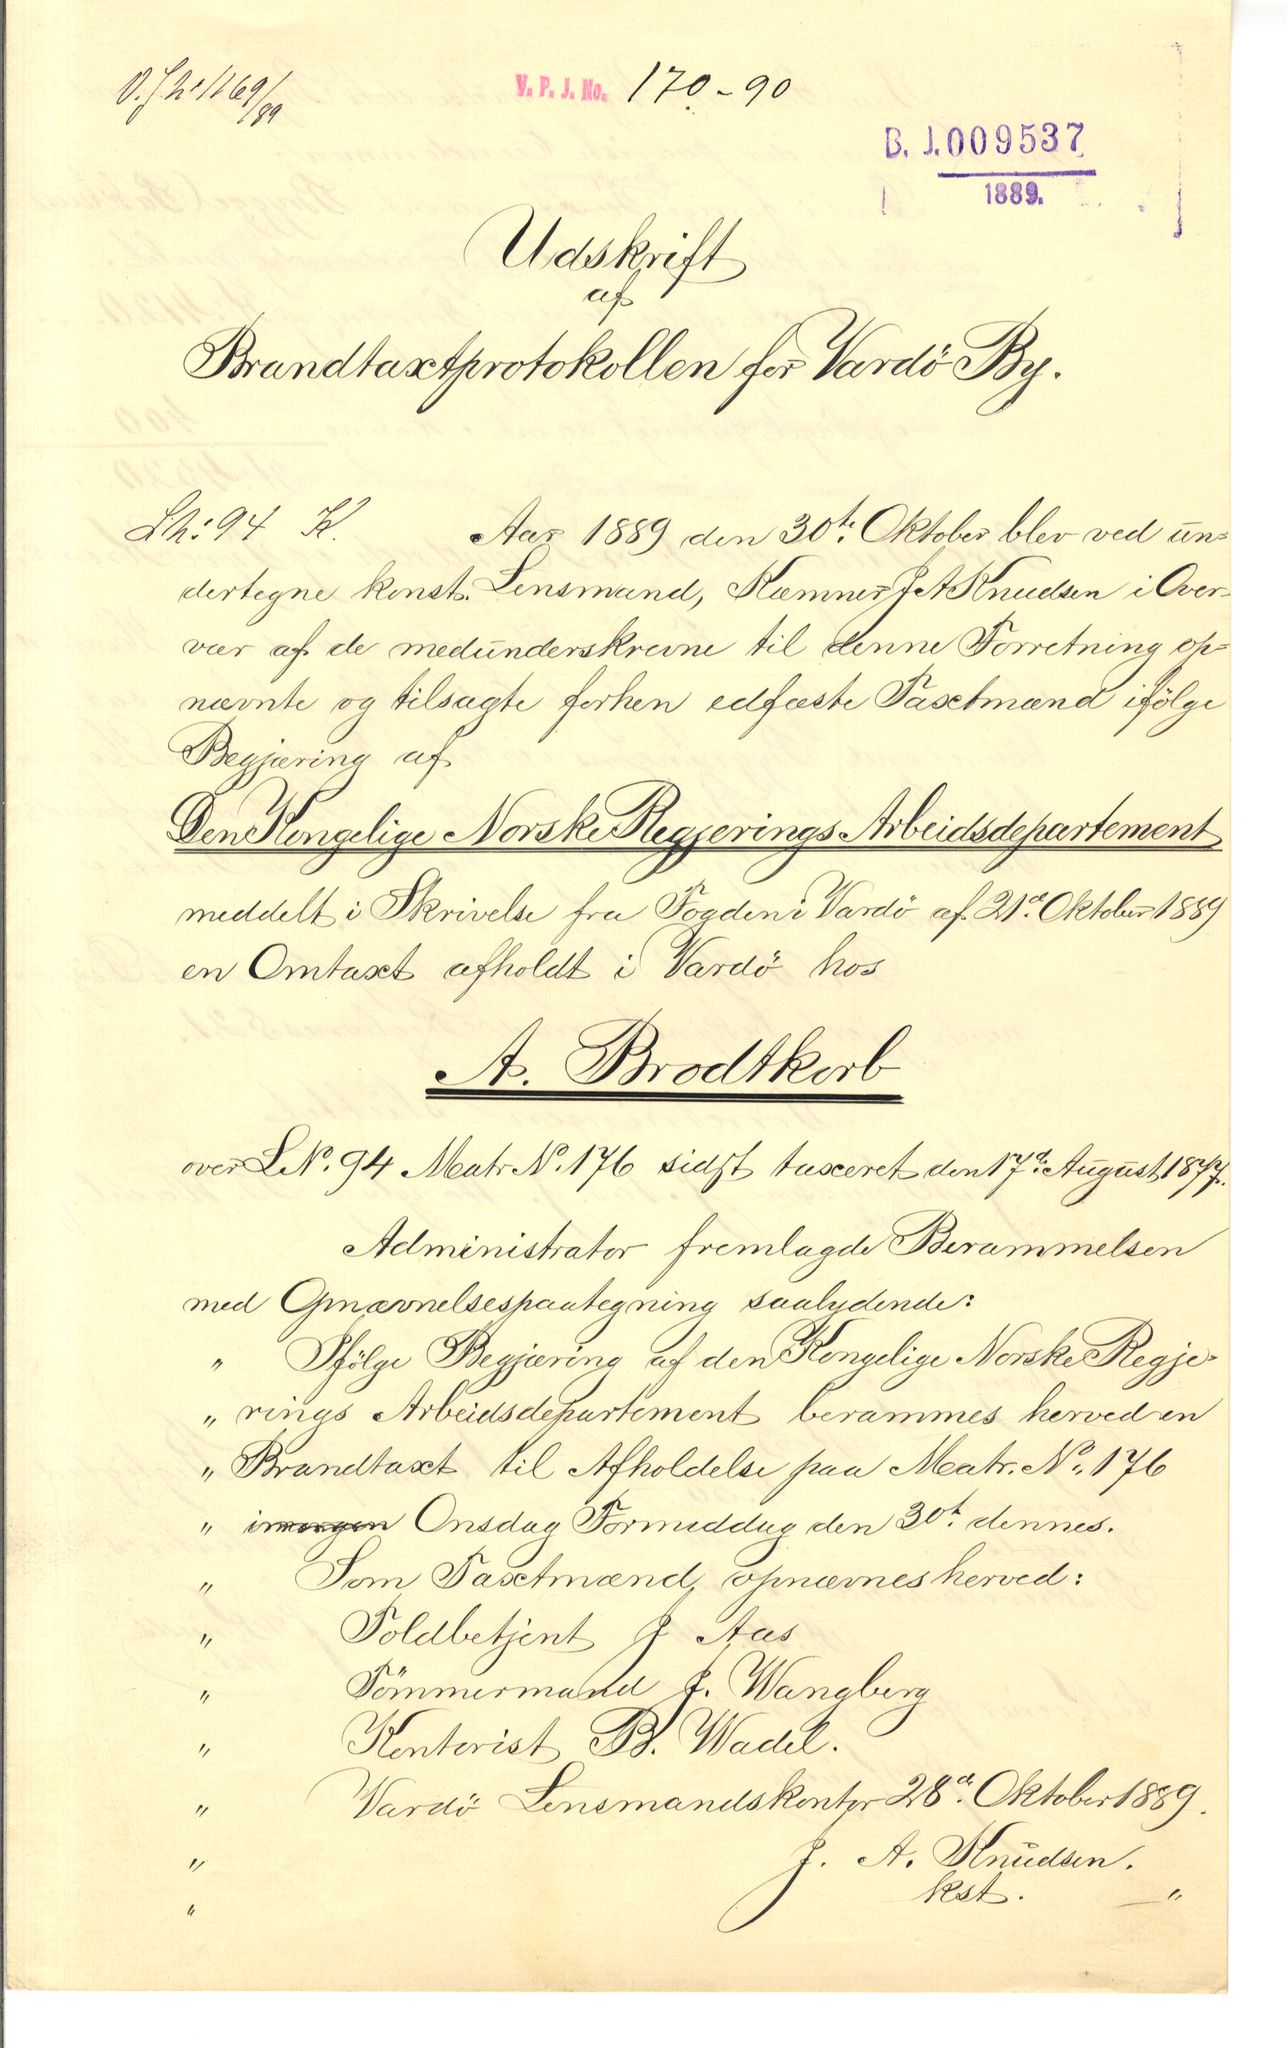 V. P. J. No. 170-90
B. J. 009537
1889.
Udskrift
af
Brandtaxtprotokollen for Vardö By.
LN: 94 K. Aar 1889 den 30te Oktober blev ved un-
dertegne konst. Lensmand, Kæmner J A Knudsen i Over-
vær af de medunderskrevne til denne Forretning op-
nævnte og tilsagte forhen edfæste Taxtmænd ifölge
Begjæring af
Den Kongelige Norske Regjerings Arbeidsdepartement
meddelt i Skrivelse fra Fogden i Vardö af 21de Oktober 1889
en Omtaxt afholdt i Vardö hos
A. Brodtkorb
over LNo. 94 Matr No. 176 sidst taxeret den 17de August 1877.
Administrator fremlagde Berammelsen
med Opnævnelsespaategning saalydende:
" Ifölge Begjæring af den Kongelige Norske Regje-
" rings Arbeidsdepartement berammes herved en
" Brandtaxt til Afholdelse paa Matr. No. 176
" imorgen Onsdag Formiddag den 30te dennes.
" Som Taxtmænd opnævnes herved:
" Toldbetjent J Aas
" Tömmermand J. Wangberg
" Kontorist B. Wadel.
" Vardö Lensmandskontor 28de Oktober 1889.
" J. A. Knudsen.
" kst. "